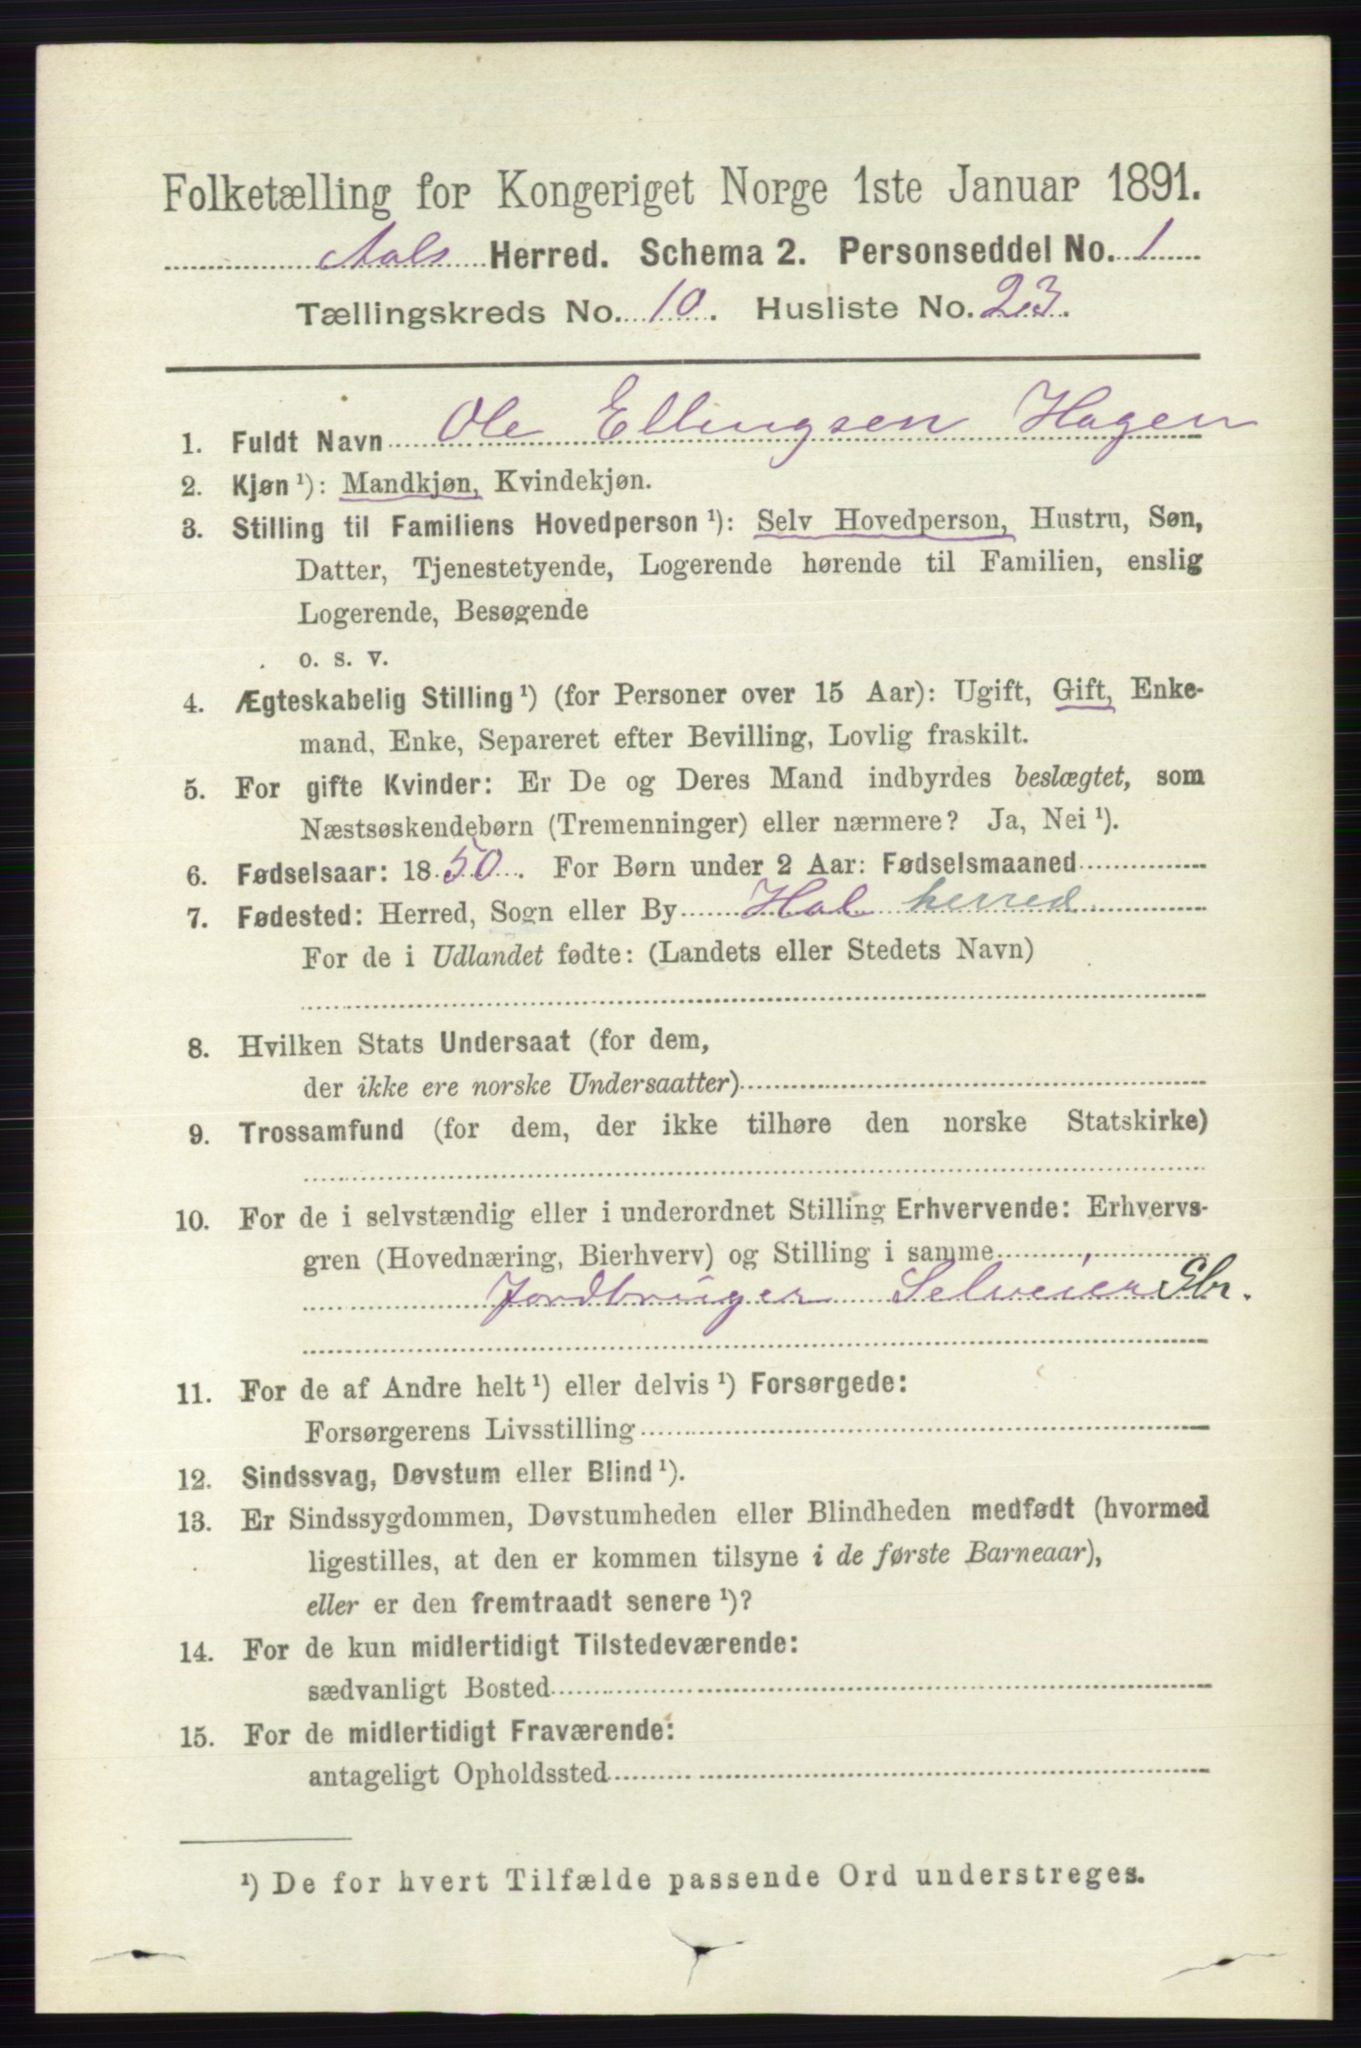 Folketælling for Kongeriget Norge 1ste Januar 1891.
Aals Herred. Schema 2. Personseddel No. 1
Tællingskreds No. 10. Husliste No. 23.
1. Fuldt Navn Ole Ellingsen Hagen
2. Kjøn ¹): Mandkjøn, Kvindekjøn.
3. Stilling til Familiens Hovedperson ¹): Selv Hovedperson, Hustru, Søn,
Datter, Tjenestetyende, Logerende hørende til Familien, enslig
Logerende, Besøgende
o. s. v.
4. Ægteskabelig Stilling ¹) (for Personer over 15 Aar): Ugift, Gift, Enke-
mand, Enke, Separeret efter Bevilling, Lovlig fraskilt.
5. For gifte Kvinder: Er De og Deres Mand indbyrdes beslægtet, som
Næstsøskendebørn (Tremenninger) eller nærmere? Ja, Nei ¹).
6. Fødselsaar: 1850. For Børn under 2 Aar: Fødselsmaaned
7. Fødested: Herred, Sogn eller By Hol herred
For de i Udlandet fødte: (Landets eller Stedets Navn)
8. Hvilken Stats Undersaat (for dem,
der ikke ere norske Undersaatter)
9. Trossamfund (for dem, der ikke tilhøre den norske Statskirke)
10. For de i selvstændig eller i underordnet Stilling Erhvervende: Erhvervs-
gren (Hovednæring, Bierhverv) og Stilling i samme
Jordbruger Selveier Gbr.
11. For de af Andre helt ¹) eller delvis ¹) Forsørgede:
Forsørgerens Livsstilling
12. Sindssvag, Døvstum eller Blind ¹).
13. Er Sindssygdommen, Døvstumheden eller Blindheden medfødt (hvormed
ligestilles, at den er kommen tilsyne i de første Barneaar),
eller er den fremtraadt senere ¹)?
14. For de kun midlertidigt Tilstedeværende:
sædvanligt Bosted
15. For de midlertidigt Fraværende:
antageligt Opholdssted
¹) De for hvert Tilfælde passende Ord understreges.